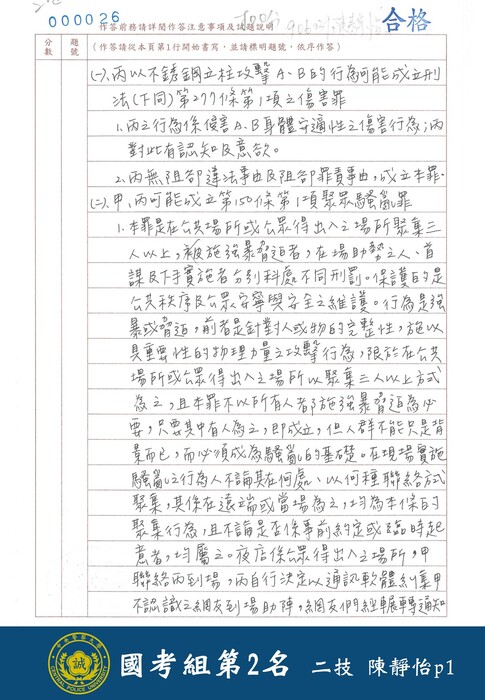 000026
作答前務請詳閱作答注意事項及試題說明
合格
分數
題號
(作答請從本頁第1行開始書寫，並請標明題號，依序作答)
(一)、丙以不銹鋼立柱攻擊A、B的行為可能成立刑
法(下同)第277條第1項之傷害罪
1.丙之行為係侵害A、B身體安適性之傷害行為；丙
對此有認知及意欲。
2.丙無阻卻違法事由及阻卻罪責事由，成立本罪。
(二)、甲、丙可能成立第150條第1項聚眾騷亂罪
1.本罪是在公共場所或公眾得出入之場所聚集三
人以上，施強暴脅迫者，在場助勢之人、首
謀及下手實施者分別科處不同刑罰。保護的是
公共秩序及公眾安寧與安全之維護。行為是強
暴或脅迫，前者是針對人或物的完整性，施以
具重要性的物理力量之攻擊行為，限於在公共
場所或公眾得出入之場所以聚集三人以上方式
為之，且本罪不以所有人者都施強暴脅迫為必
要，只要其中有人為之，即成立，但人群不能只是背
景而已，而必須成為騷亂的基礎。在現場實施
騷亂之行為人不論其在何處、以何種聯絡方式
聚集，其係在遠端或當場為之，均為本條的
聚集行為，且不論是否係事前約定或臨時起
意者，均屬之。夜店係公眾得出入之場所，甲
聯絡丙到場，丙自行決定以通訊軟體糾集甲
不認識之網友到場助陣，網友們經輾轉通知
誠
CENTRAL POLICE UNIVERSITY
國考組第2名 二技 陳靜怡p1